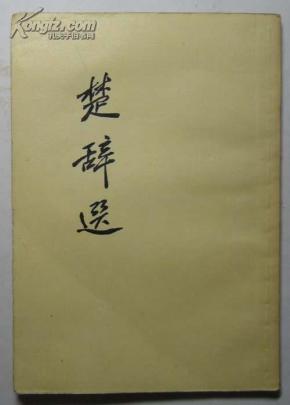 KongFZ.com
孔夫子旧书网
楚辞選